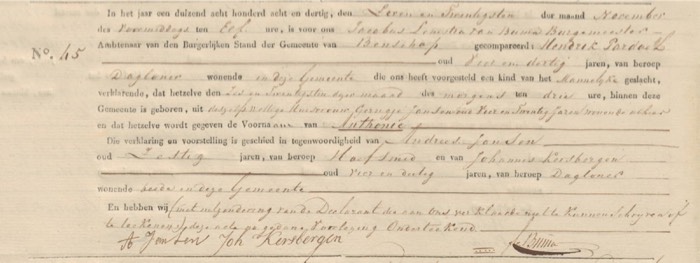 In het jaar een duizend acht honderd acht en dertig, den Zeven en Twentigsten der maand November
des Voormiddags ten Elf ure, is voor ons Jacobus Burgemeester
Ambtenaar van den Burgerlijken Stand der Gemeente van Benschop gecompareerd: Hendrik
N°. 45
oud Vier en dertig jaren, van beroep
Daglooner wonende in deze Gemeente die ons heeft voorgesteld een kind van het Mannelyke geslacht,
verklarende, dat hetzelve den Zes en Twentigsten dezer maand des morgens ten drie ure, binnen deze
Gemeente is geboren, uit zijne Huisvrouw, Jansen oud Vier en Twentig Jaren
en dat hetzelve wordt gegeven de Voornaam van Anthonie
Die verklaring en voorstelling is geschied in tegenwoordigheid van Andries Jansen
oud jaren, van beroep Hoefsmid en van Johannis Kersbergen
oud vier en dertig jaren, van beroep Daglooner
wonende beide in deze Gemeente
En hebben wij (met uitzondering van de Declarant die aan ons verklaarde niet te kunnen schryven of
te teekenen) deze acte na gedane Voorlezing Onderteekend
A Jansen Joh Kersbergen